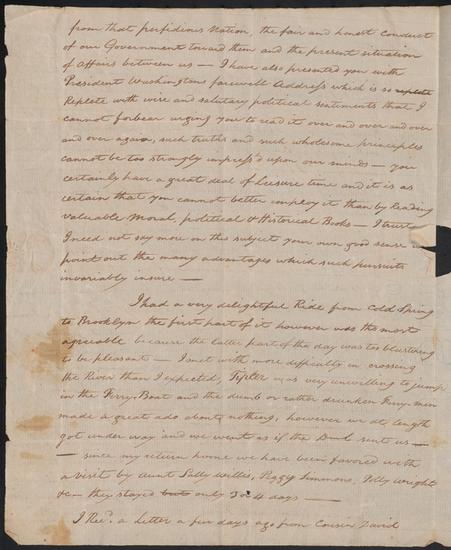 from that perfidious Nation, the fair and honest conduct
of our Government toward them and the present situation
of Affairs between us — I have also presented you with
President Washingtons farewell Address which is so replete
Replete with wise and salutary political sentiments that I
cannot forbear urging you to read it over and over and over
and over again, such truths and such wholesome principles
cannot be too strongly impress'd upon our minds — you
certainly have a great deal of Leisure time and it is as
certain that you cannot better employ it than by Reading
valuable Moral, political & Historical Books — I trust
I need not say more on this subject your own good sense
point out the many advantages which such pursuits
invariably insure —
I had a very delightful Ride from Cold Spring
to Brooklyn the first part of it however was the most
agreeable because the latter part of the day was too blustering
to be pleasant — I met with more difficulty in crossing
the River than I expected, Tipler was very unwilling to jump
in the Ferry-Boat and the dumb or rather drunken Ferry-men
made a great ado about nothing, however we at length
got under way and we went as if the Devil sent us —
— since my return home we have been favored with
a visit by Aunt Sally Willis, Peggy Simmons, Polly Wright
&c — they stayed but only 3 or 4 days —
I Recd. a Letter a few days ago from Cousin David